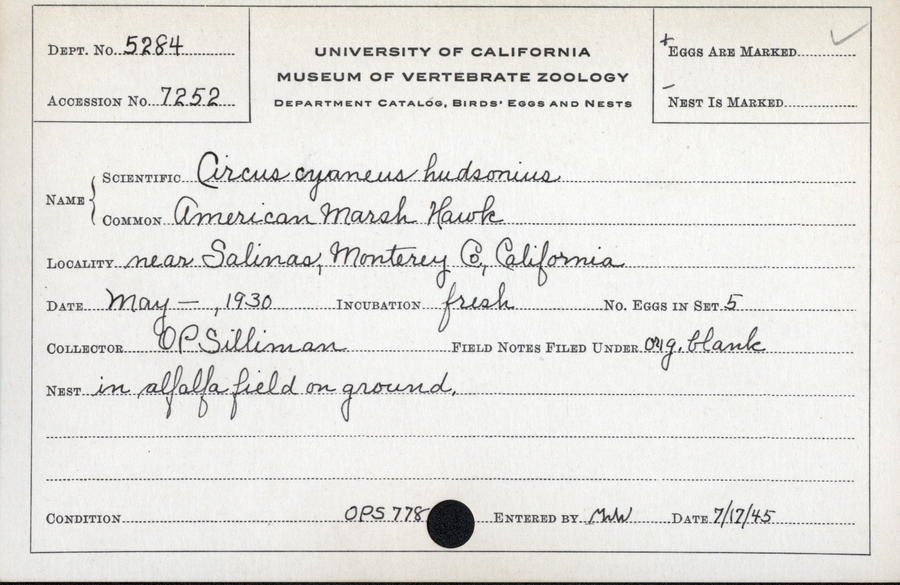 DEPT. NO. 5284
ACCESSION NO. 7252
UNIVERSITY OF CALIFORNIA
MUSEUM OF VERTEBRATE ZOOLOGY
DEPARTMENT CATALOG, BIRDS' EGGS AND NESTS
+ EGGS ARE MARKED ✓
- NEST IS MARKED
NAME { SCIENTIFIC Circus cyaneus hudsonius
COMMON American Marsh Hawk
LOCALITY near Salinas, Monterey Co., California
DATE May — , 1930 INCUBATION fresh NO. EGGS IN SET 5
COLLECTOR OP Silliman FIELD NOTES FILED UNDER orig. blank
NEST in alfalfa field on ground.
CONDITION OPS 778 ENTERED BY DATE 7/17/45